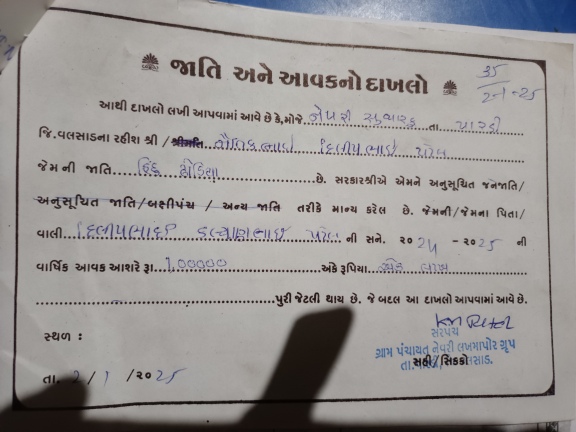 જાતિ અને આવકનો દાખલો
35
2-1-25
આથી દાખલો લખી આપવામાં આવે છે કે, મોજે નેવરી તા.
જિ. વલસાડના રહીશ શ્રી/શ્રીમતિ દિલીપભાઇ પટેલ
જેમની જાતિ હિંદુ ધોડિયા છે. સરકારશ્રીએ એમને અનુસૂચિત જનજાતિ/
અનુસૂચિત જાતિ/બક્ષીપંચ / અન્ય જાતિ તરીકે માન્ય કરેલ છે. જેમની/જેમના પિતા/
વાલી દિલીપભાઇ કલ્યાણભાઇ પટેલ ની સને. ૨૦24 - ૨૦25 ની
વાર્ષિક આવક આશરે રૂા. 1,00000 અંકે રૂપિયા એક લાખ
પુરી જેટલી થાય છે. જે બદલ આ દાખલો આપવામાં આવે છે.
સ્થળ :
સરપંચ
ગ્રામ પંચાયત નેવરી લખમાપોર ગ્રુપ
તા. સહી/સિક્કો વલસાડ.
તા. 2 / 1 / ૨૦25